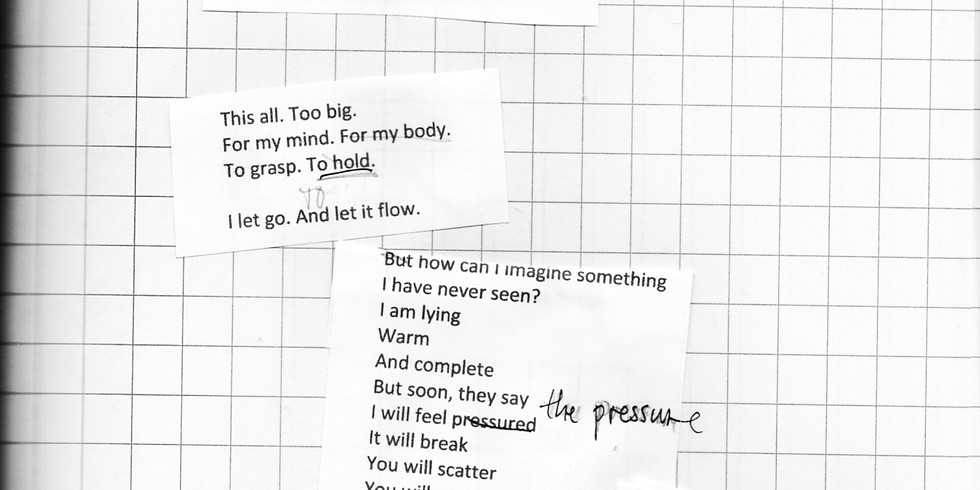 This all. Too big.
For my mind. For my body.
To grasp. To hold.
To
I let go. And let it flow.
But how can I imagine something
I have never seen?
I am lying
Warm
And complete
But soon, they say
I will feel pressured the pressure
It will break
You will scatter
You will